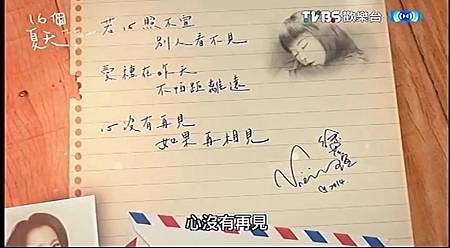 16個
夏天
TVBS歡樂台
若心照不宣
別人看不見
愛種在昨天
不怕距離遠
心沒有再見
如果再相見
2014
心沒有再見